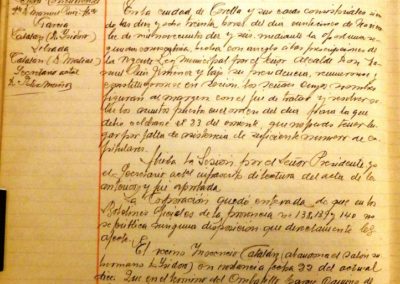 García
Catalán (D. Isidoro)
Estrada
Catalán (D. Matías)
Secretario actal
D. Felix Muñoz
En la ciudad de Corella y sus casas consistoriales
de las diez y ocho treinta horas del dia veinticinco de Noviem
bre de mil novecientos diez y seis mediante la oportuna se
gunda convocatoria hecha con arreglo a las prescripciones de
la vigente Ley municipal por el señor Alcalde Don
Luis Jimenez y bajo su presidencia, reunieron y
constituyeron en sesion los señores cuyos nombres
figuran al margen con el fin de tratar y resolver so
bre los asuntos puestos en el orden del dia para la que
debio celebrarse el 23 del corriente, que no pudo tener lu
gar por falta de asistencia de suficiente número de ca
pitulares.
Abierta la Sesion por el Señor Presidente yo
el Secretario actal infrascrito di lectura del acta de la
anterior y fue aprobada.
La Corporación quedó enterada de que en los
Boletines Oficiales de la provincia nº 138, 139 y 140 no
se publica ninguna disposicion que directamente le
afecte.
El vecino Inocencio Catalán (abandona el Salon su
hermano D. Isidoro) en instancia fecha 22 del actual
dice: Que en el termino del Ombatillo